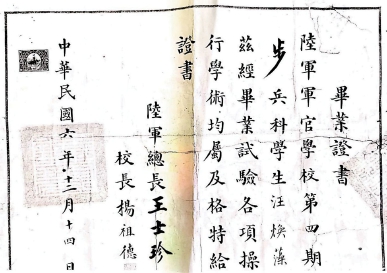 畢業證書
陸軍軍官學校第四期
步兵科學生汪煥藻
茲經畢業試驗各項操
行學術均屬及格特給
證書
陸軍總長王士珍
校長楊祖德
中華民國六年十二月十四日